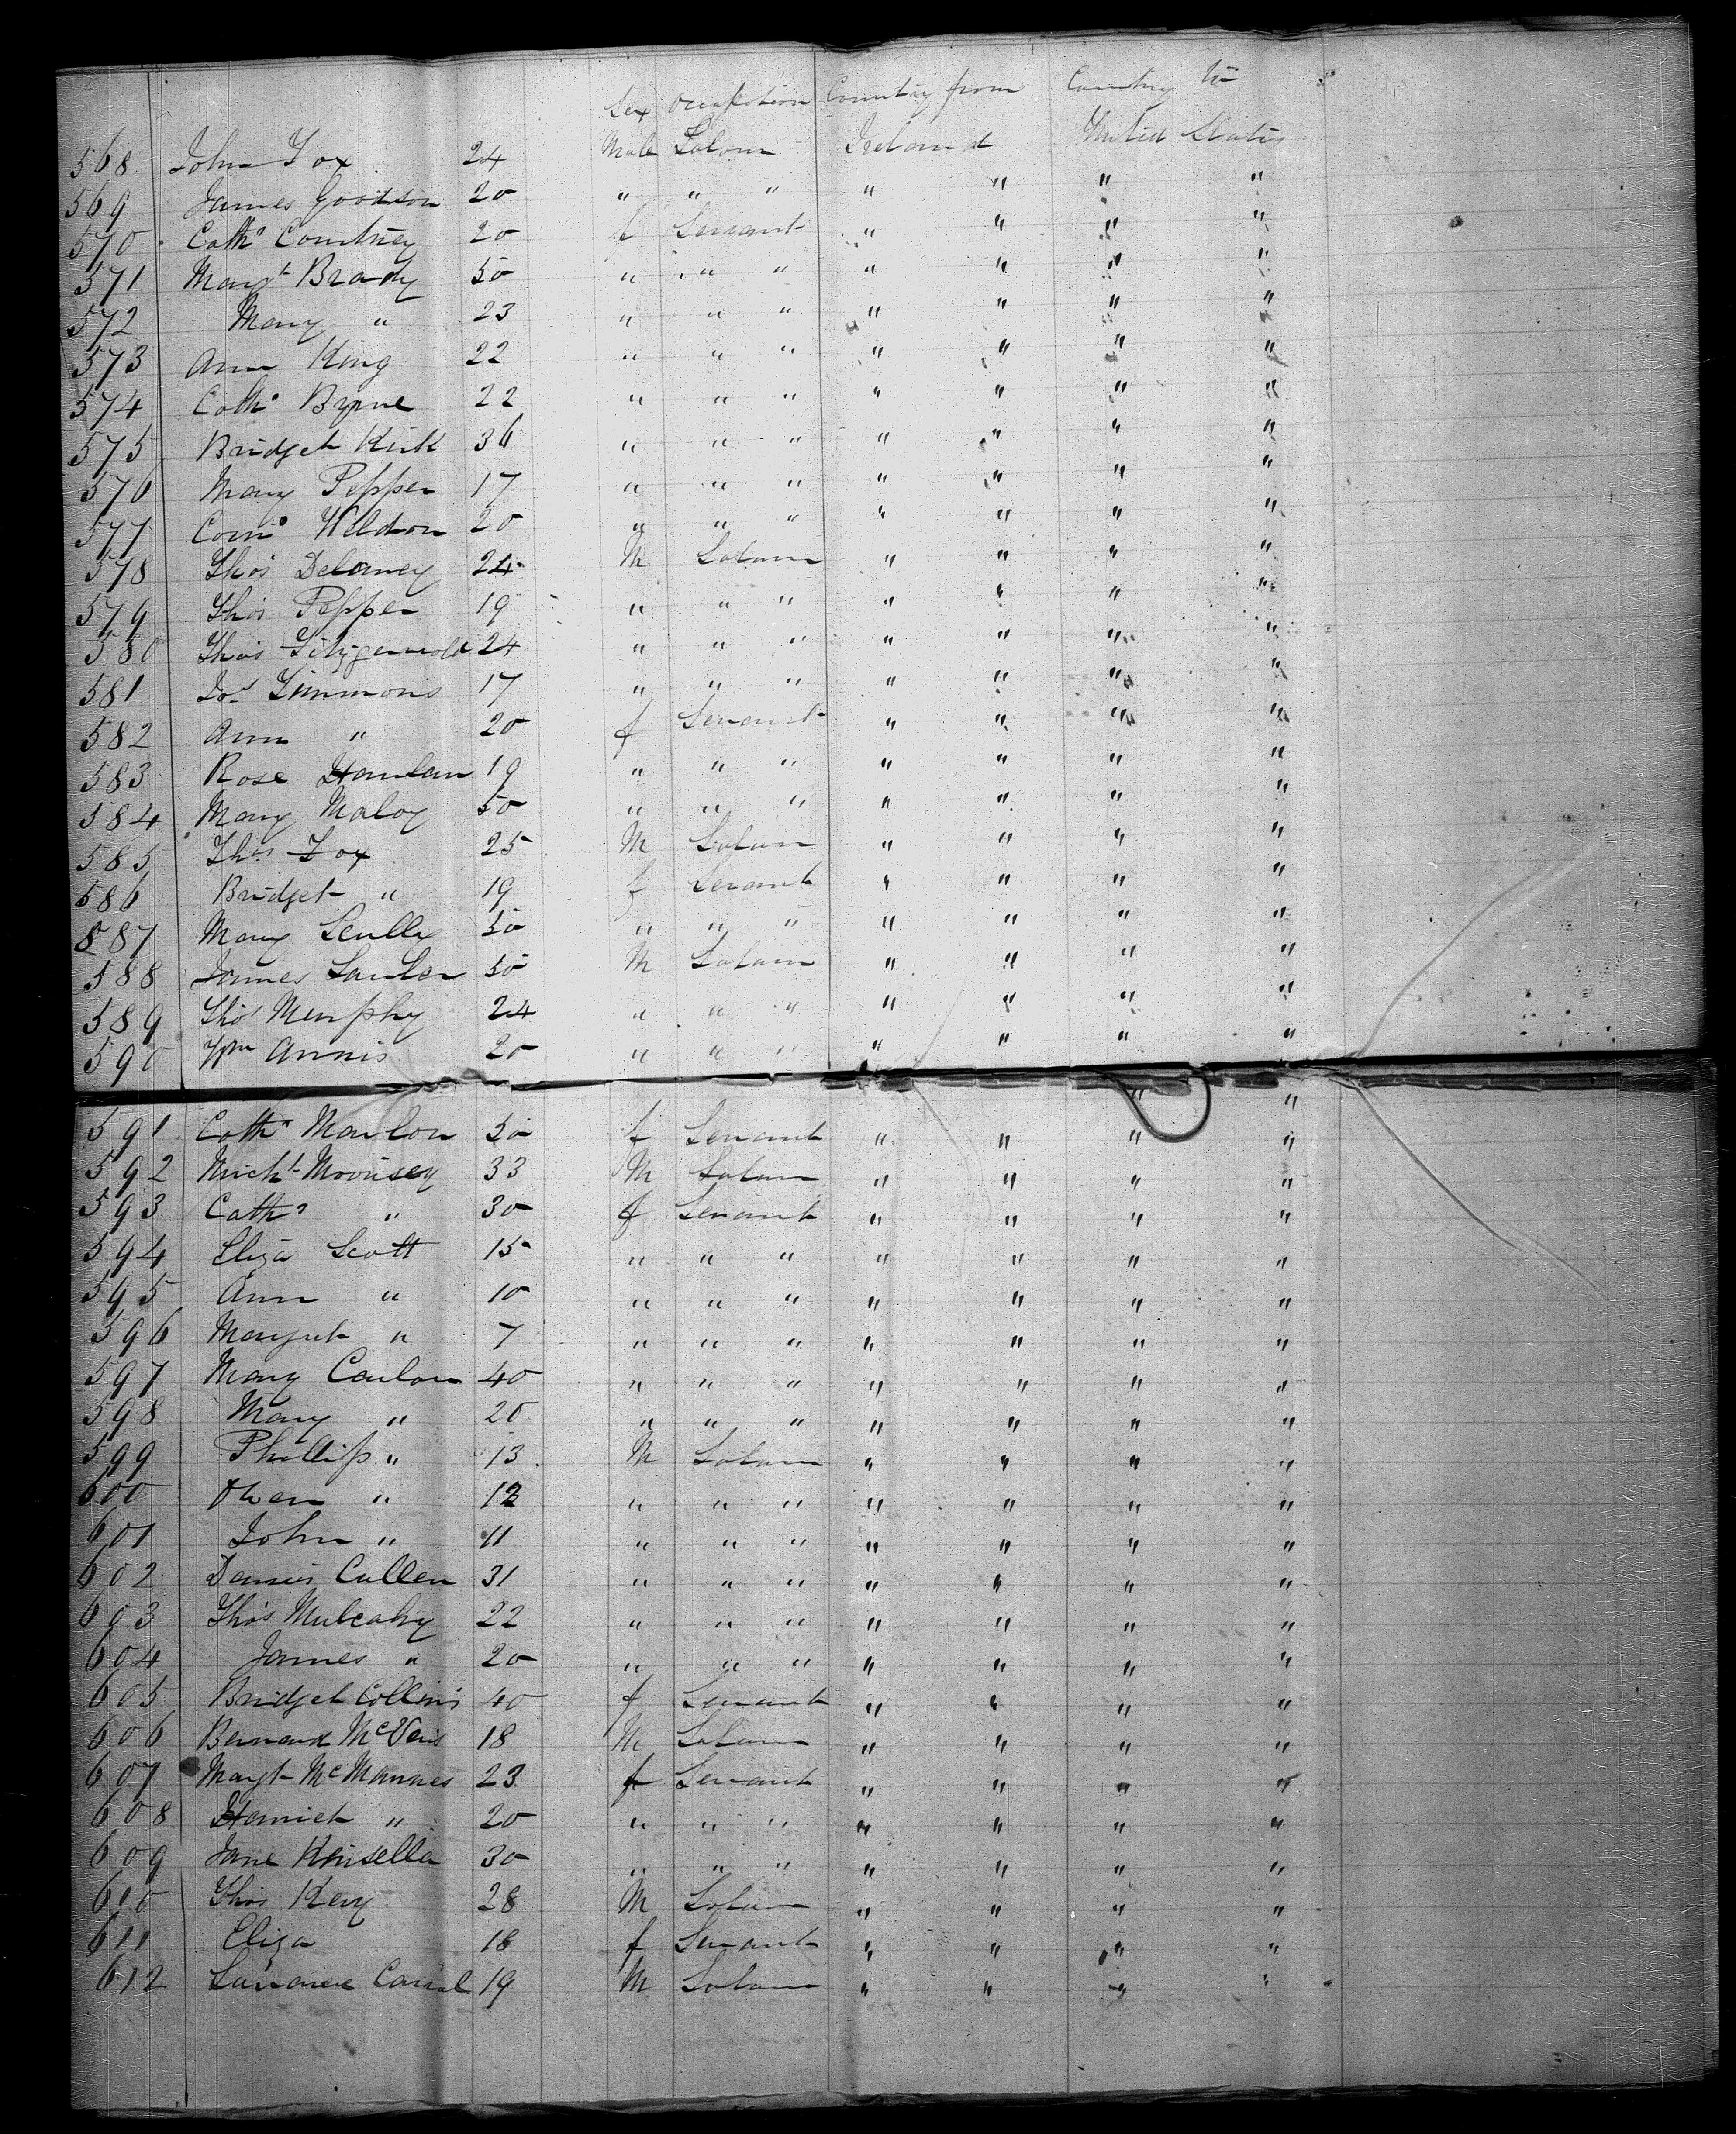 Sex Occupation Country from Country to
568 John Fox 24 Male Labour Ireland United States
569 James Goodson 20 " " " " " " "
570 Cath. Courtney 20 f Servant " " " "
571 Margt Brady 50 " " " " " " "
572 Mary " 23 " " " " " " "
573 Ann King 22 " " " " " " "
574 Cath. Byrne 22 " " " " " " "
575 Bridget Kirk 36 " " " " " " "
576 Mary Pepper 17 " " " " " " "
577 Weldon 20 " " " " " " "
578 Thos Delaney 24 M Labour " " " "
579 Thos Pepper 19 " " " " " " "
580 Thos Fitzgerrald 24 " " " " " " "
581 Jos Timmons 17 " " " " " " "
582 Ann " 20 f Servant " " " "
583 Rose Hanlan 19 " " " " " " "
584 Mary Maloy 50 " " " " " " "
585 Thos Fox 25 M Labour " " " "
586 Bridget " 19 f Servant " " " "
587 Mary Scully 50 " " " " " " "
588 James Lawler 50 M Labour " " " "
589 Thos Murphy 24 " " " " " " "
590 Wm Annis 20 " " " " " " "
" "
591 Cath. 30 f Servant " " " "
592 Michl 33 M Labour " " " "
593 Cath. " 30 f Servant " " " "
594 Eliza Scott 15 " " " " " " "
595 Ann " 10 " " " " " " "
596 Margret " 7 " " " " " " "
597 Mary Conlon 40 " " " " " " "
598 Mary " 20 " " " " " " "
599 Phillip " 13 M Labour " " " "
600 Owen " 12 " " " " " " "
601 John " 11 " " " " " " "
602 Dennis Cullen 31 " " " " " " "
603 Thos Mulcahy 22 " " " " " " "
604 James " 20 " " " " " " "
605 Bridget Collins 40 f Servant " " " "
606 Bernard 18 M Labour " " " "
607 Margt McManues 23 f Servant " " " "
608 Harriet " 20 " " " " " " "
609 Jane Kinsella 30 " " " " " " "
610 Thos 28 M Labour " " " "
611 Eliza 18 f Servant " " " "
612 19 M Labour " " " "